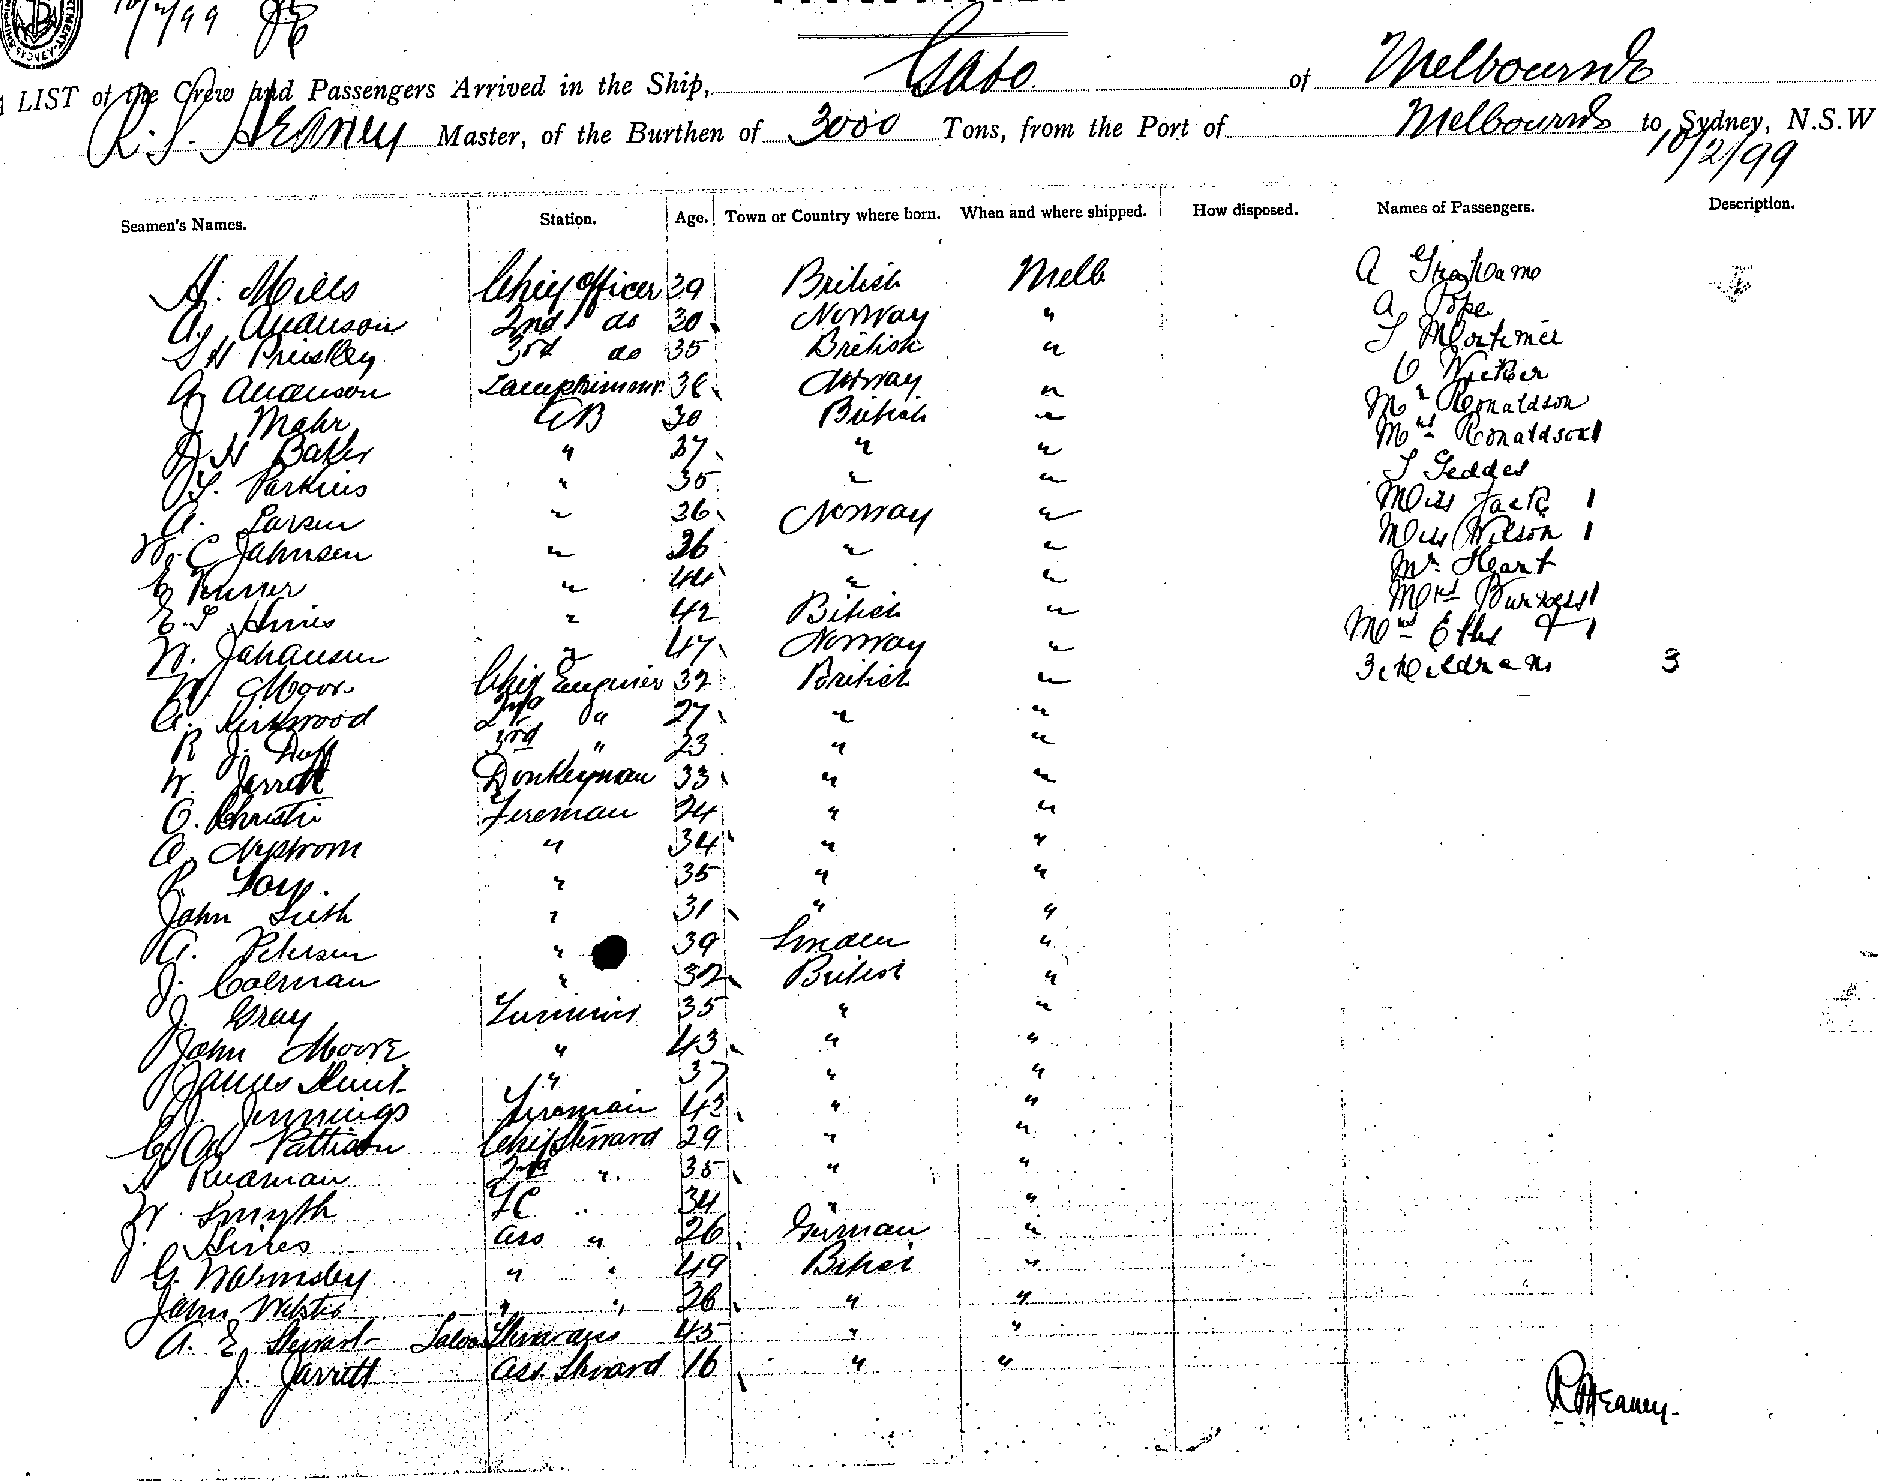 10/2/99
LIST of the Crew and Passengers Arrived in the Ship, Gabo of Melbourne
Master, of the Burthen of 3000 Tons, from the Port of Melbourne to Sydney, N.S.W
10/2/99
Seamen's Names. Station. Age. Town or Country where born. When and where shipped. How disposed. Names of Passengers. Description.
H. Mills Chief Officer 39 British Melb A Grahame
2nd do 30 Norway " A Pope
3rd do 35 British " Mortimer
A Norway "
J Mahr AB 30 British " Mr Ronaldson
J H Baker " 37 " " Mrs Ronaldson 1
Parkins " 35 " " Geddes
A. Larsen " 36 Norway " Miss Jack 1
W. C Johnsen " 26 " " Miss Wilson 1
" 44 " " Mr Heart
" 42 British " Mrs Burgess 1
" 47 Norway " Mrs 1
Moor Chief Engineer 32 British " 3 childrens 3
A. Kirkwood 2nd " 27 " "
R J. Duff 3rd " 23 " "
W. Jarrett Donkeyman 33 " "
C. Christie Fireman 24 " "
A. Nystrom " 34 " "
" 35 " "
John " 31 " "
A. Petersen " 39 "
J. Coleman " 32 British "
J. Gray 35 " "
John Moore " 43 " "
James Hunt " 37 " "
J. Jennings Fireman 43 " "
Pattison Chief Steward 29 " "
Rudman 2nd " 35 " "
W. Smyth FC " 34 " "
J. Hines ass " 26 German "
G. Walmsley " " 49 British "
John Webster " " 26 " "
A. E Stewart Saloon 45 " "
J. Jarrett ass Steward 16 " "